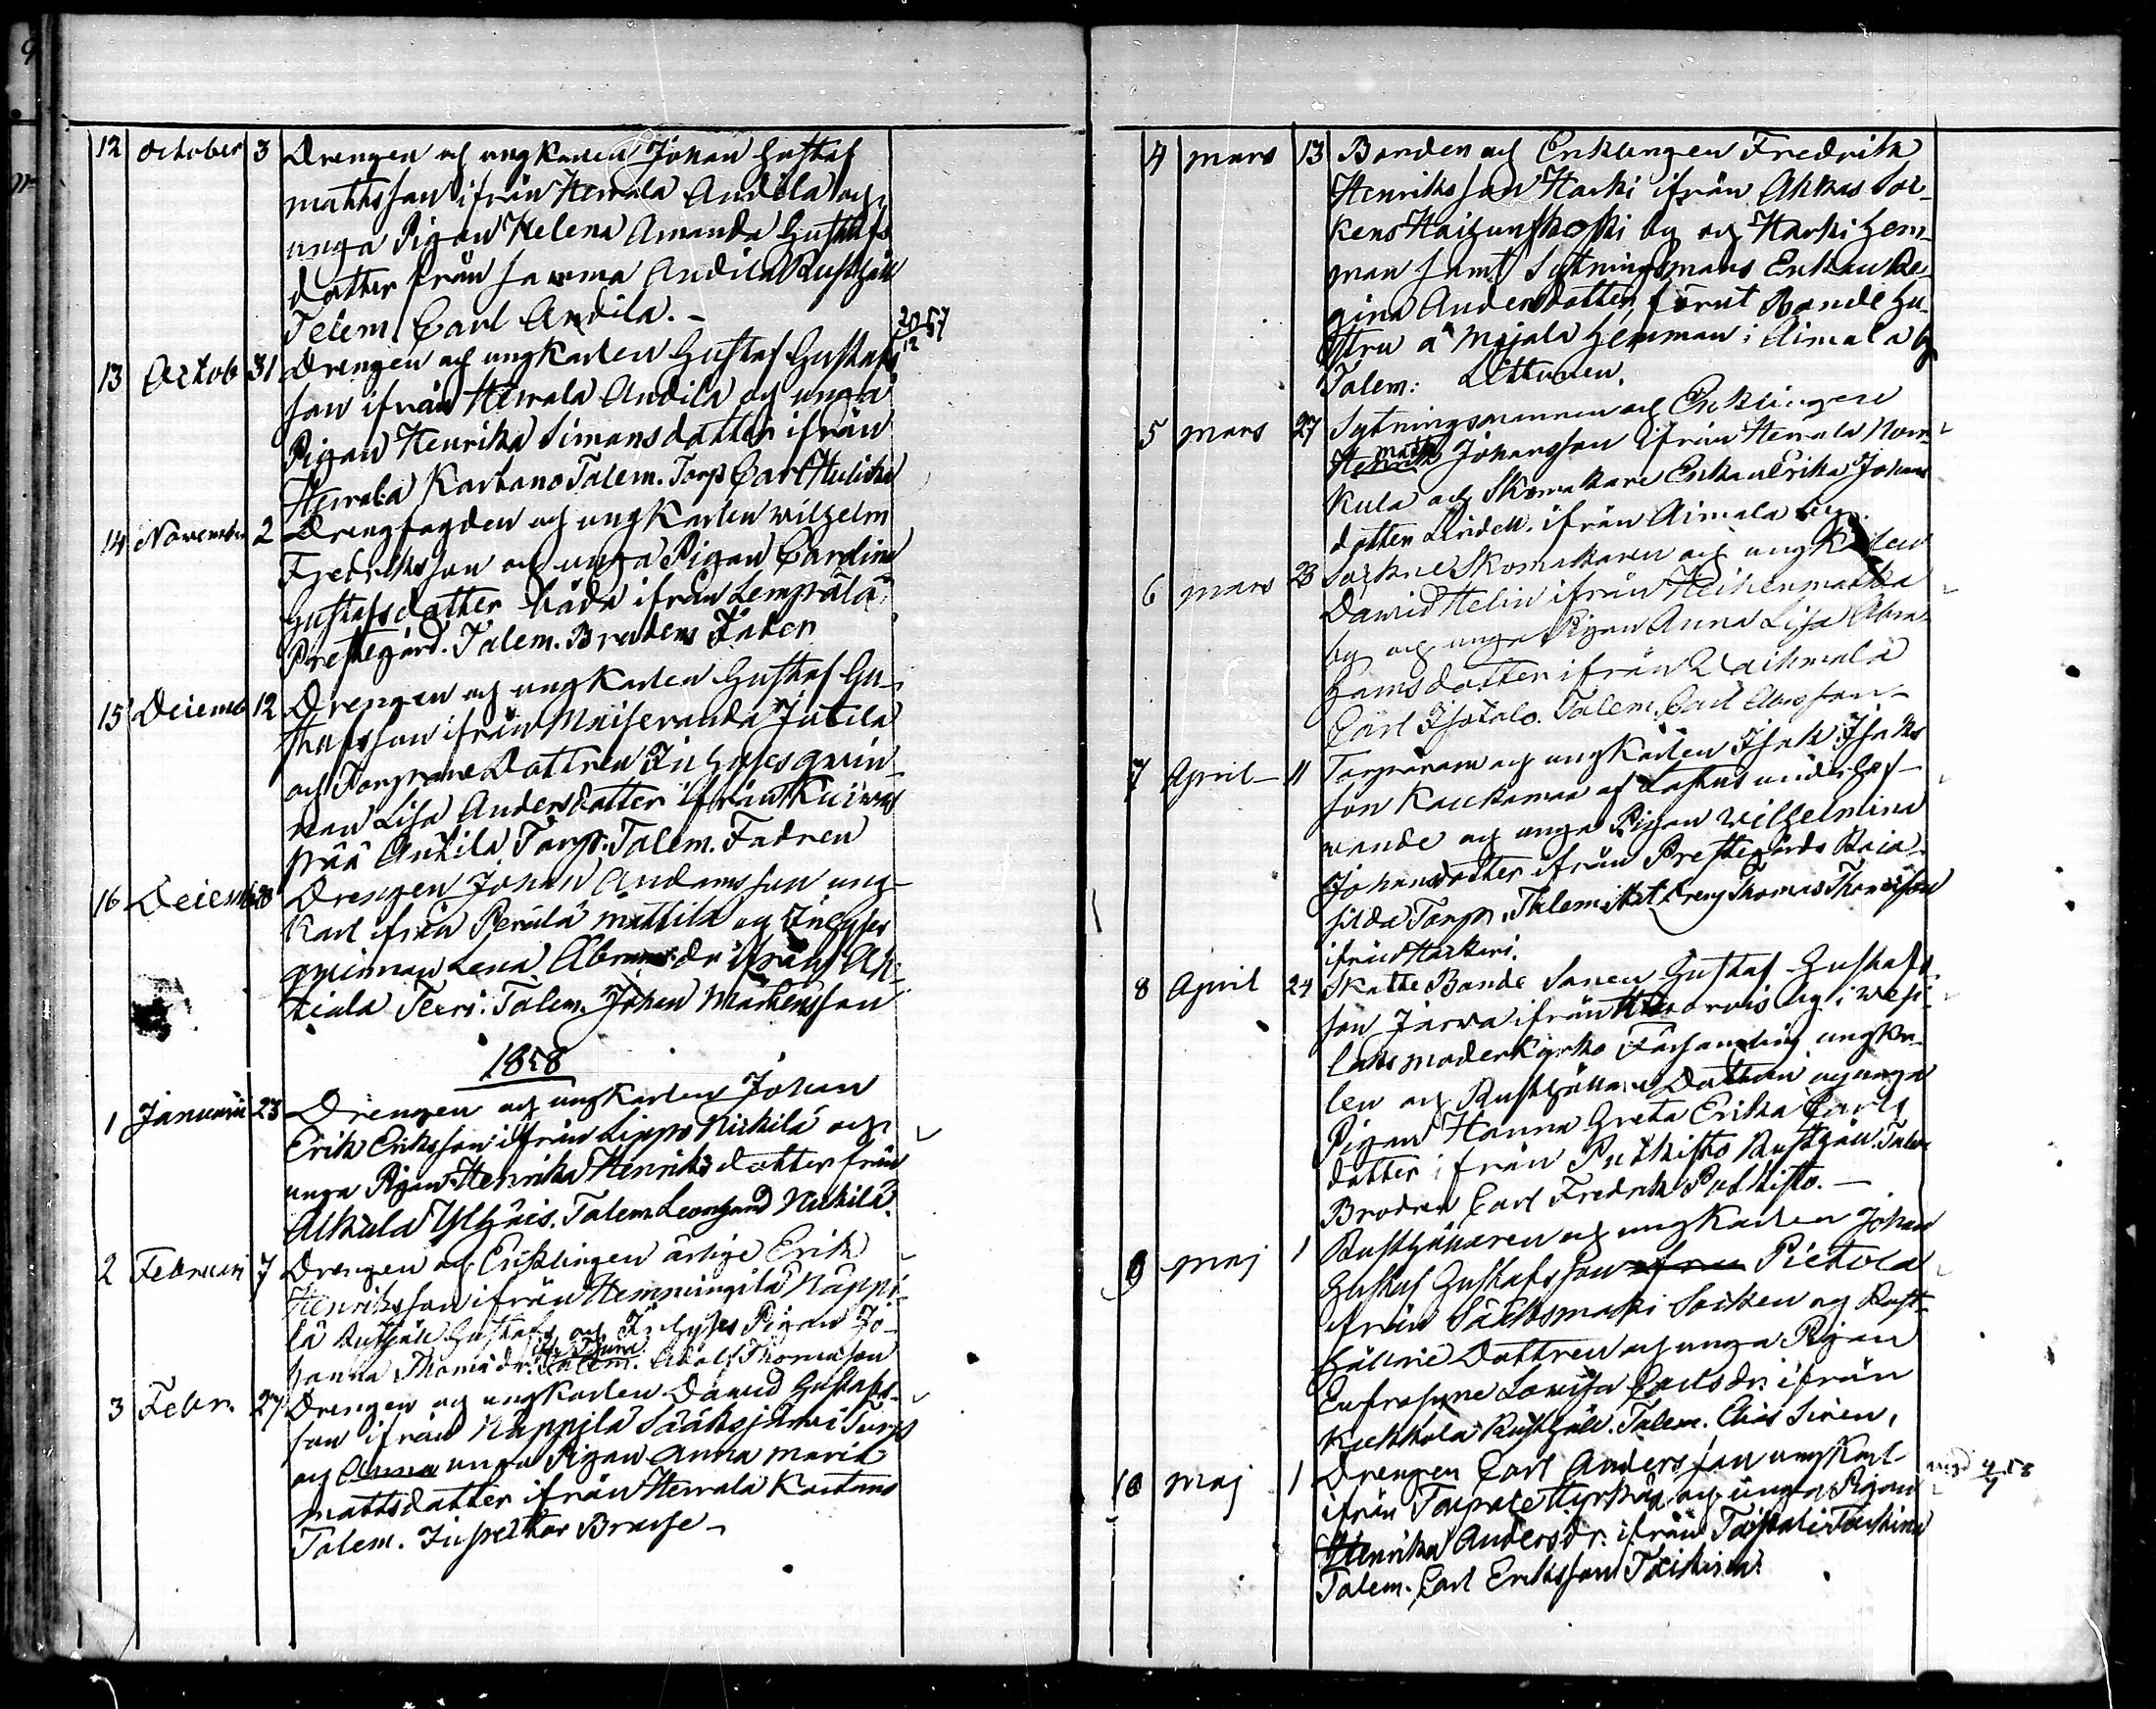 12 October 3 Drengen och ungkarlen Johan Gustaf
mattsson ifrån Herrala Andila och
unga Pigan Helena Amanda Gustafs
dotter från samma Andila Rusthåll
Talem. Carl Andila. -
13 Octob 31 Drengen och ungkarlen Gustaf Gustafs 20/12 57
son ifrån Herrala Andila och unga
Pigan Henrika Simonsdotter ifrån
Herrala Kartano Talem. Torp. Carl
14 November 2 Drengfogden och ungkarlen Wilhelm
Fredriksson och unga Pigan Carolina
Gustafsdotter båda ifrån Lempäälä
Prestegård. Talem. Brudens Fader
15 Decemb 12 Drengen och ungkarlen Gustaf Gu-
stafsson ifrån Maiseranda Jutila
och Torpare Dottren Inhyses qwin-
nan Lisa Andersdotter ifrån Kuiwas
pää Anttila Torp. Talem. Fadren
16 Decemb 28 Drengen Johan Andersson ung-
karl ifrån Perälä Mattila och Inhyses
qwinnan Lena Abramsdr ifrån Ah-
tiala Teeri. Talem. Johan Mårtensson
1858
1 Januarii 23 Drengen och ungkarlen Johan
Erik Eriksson ifrån Lippo Kickilä och
unga Pigan Henrika Henriksdotter från
Alkula Ylhäis. Talem.
2 Februari 7 Drengen och Enklingen ärlige Erik
Henriksson ifrån Hemmingilä Näppi-
lä Rusthåll och Inhyses Pigan Jo-
hanna Thomædr. Talem. Adolf Thomasson
3 Febr. 27 Drengen och ungkarlen Dawid Gustafs-
son ifrån Näppilä Sääksjärwi Torp
och Anna unga Pigan Anna Maria
Mattsdotter ifrån Herrala Kartano
Talem. Inspektor
4 mars 13 Bonden och Enklingen Fredrik
Henriksson Harki ifrån Akkas Soc-
kens by och Harki hem-
man samt Sytningsmans Enkan Re-
gina Andersdotter förut Bonde Hu-
stru å Mäjälä hemman i Aimala by
Talem: Littunen.
5 mars 27 Sytningsmannen och Enklingen
Henrik Matts Johansson ifrån Herrala Nurm
kula och Skomakare Enkan Erika Johans
dotter Lindell. ifrån Aimala by.
6 mars 28 Sockne Skomakaren och ungkarlen
Dawid Helin ifrån
by och unga Pigan Anna Lisa Abra-
hamsdotter ifrån Waihmala
Carl Isotalo. Talem. Carl
7 April 11 Torparen och ungkarlen Isak Isaks
son Kaukamaa af Lastus underhaf-
wande och unga Pigan Wilhelmina
Johansdotter ifrån Prestegårds
Torp. Talem. Dreng Thomas Thomasson
ifrån Harkeri.
8 April 24 Skatte Bonde Sonen Gustaf Gustafs
son Jarwa ifrån by i Wesi-
laks moderkyrko Församling ungkar-
len och Rusthållare Dottren och unga
Pigan Hanna Greta Erika Carls
dotter ifrån Puckisto Rusthåll. Talem
Brodren Carl Fredrik Puckisto. -
9 maj 1 Rusthållaren och ungkarlen Johan
Gustaf Gustafsson ifrån Pietola
ifrån Sääksmäki Socken och Rust-
hållare Dottren och unga Pigan
Eufrosyne Lowisa Carlsdr. ifrån
Kuckkola Rusthåll. Talem. Elias Siren.
10 maj 1 Drengen Carl Andersson ungkarl
ifrån och unga Pigan
Henrika Andersdr. ifrån Taipale Taiskina
Talem. Carl Eriksson Taiskina.